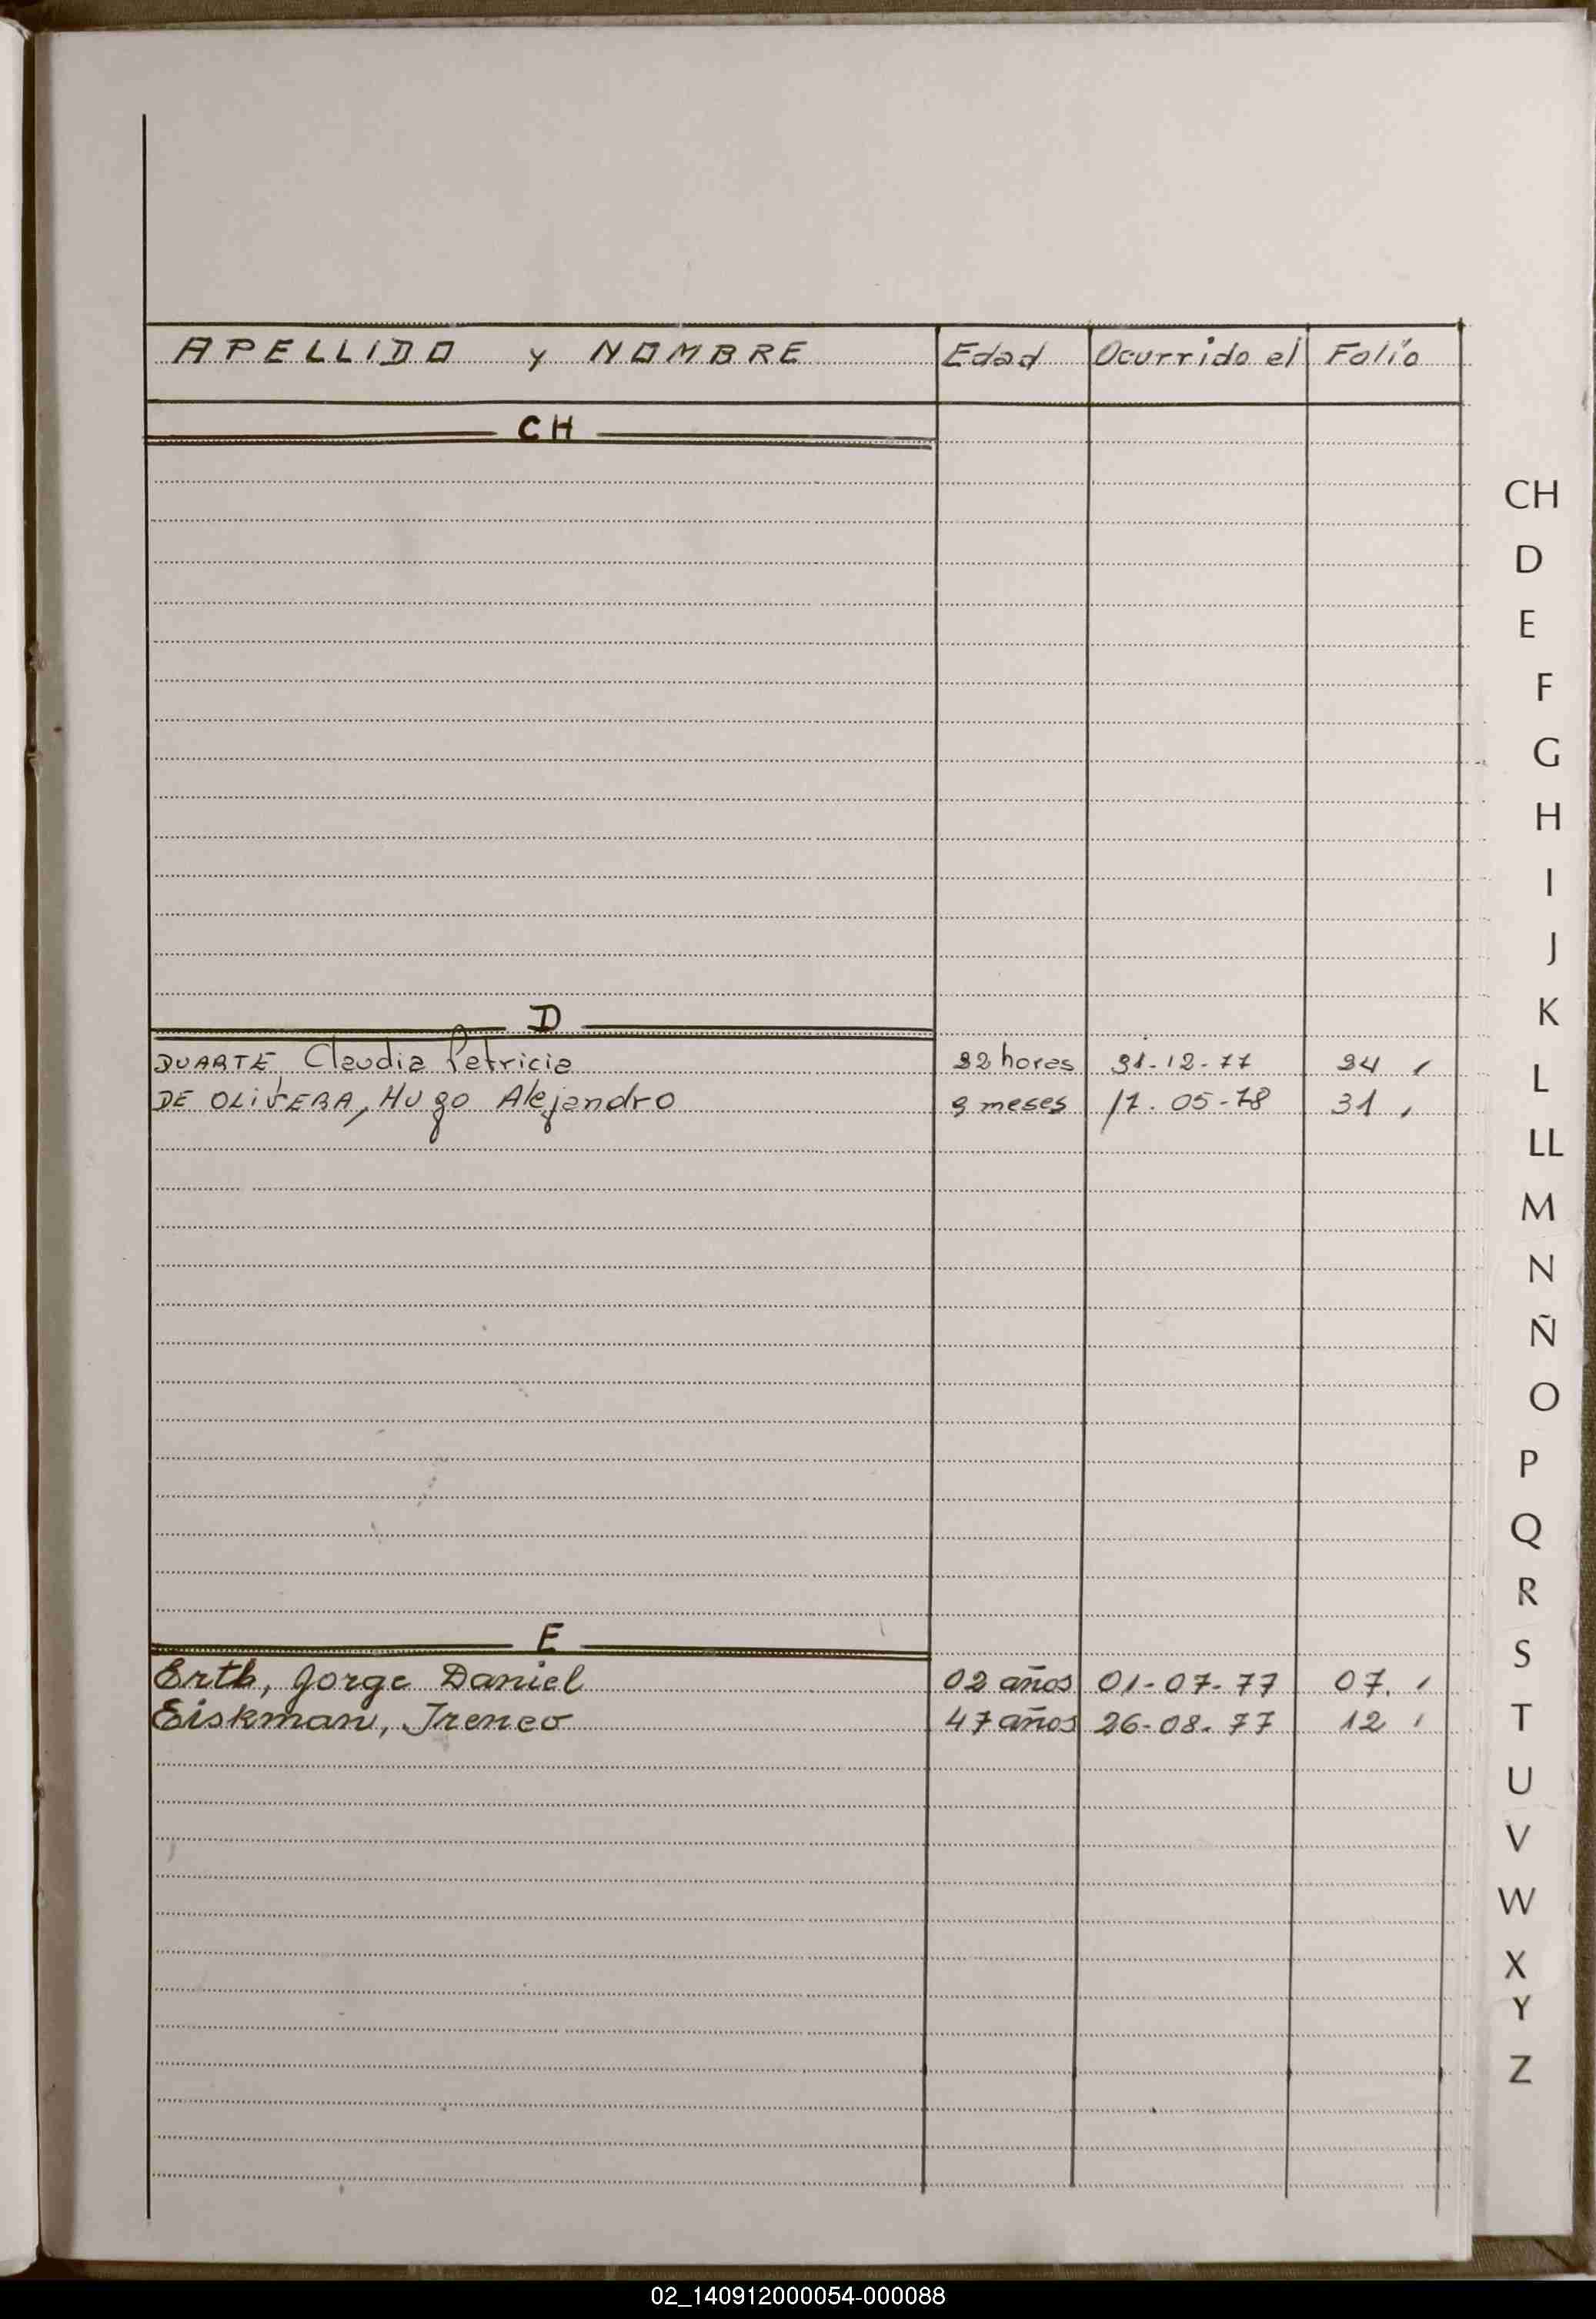 APELLIDO y NOMBRE Edad Ocurrido el Folio
CH
D
DUARTE, Claudia Patricia 22 horas 31-12-77 24
DE OLIVERA, Hugo Alejandro 9 meses 17-05-78 31
E
Erth, Jorge Daniel 02 años 01-07-77 07.
Eiskman, Ireneo 47 años 26-08-77 12
CH
D
E
F
G
H
I
J
K
L
LL
M
N
Ñ
O
P
Q
R
S
T
U
V
W
X
Y
Z
02_140912000054-000088